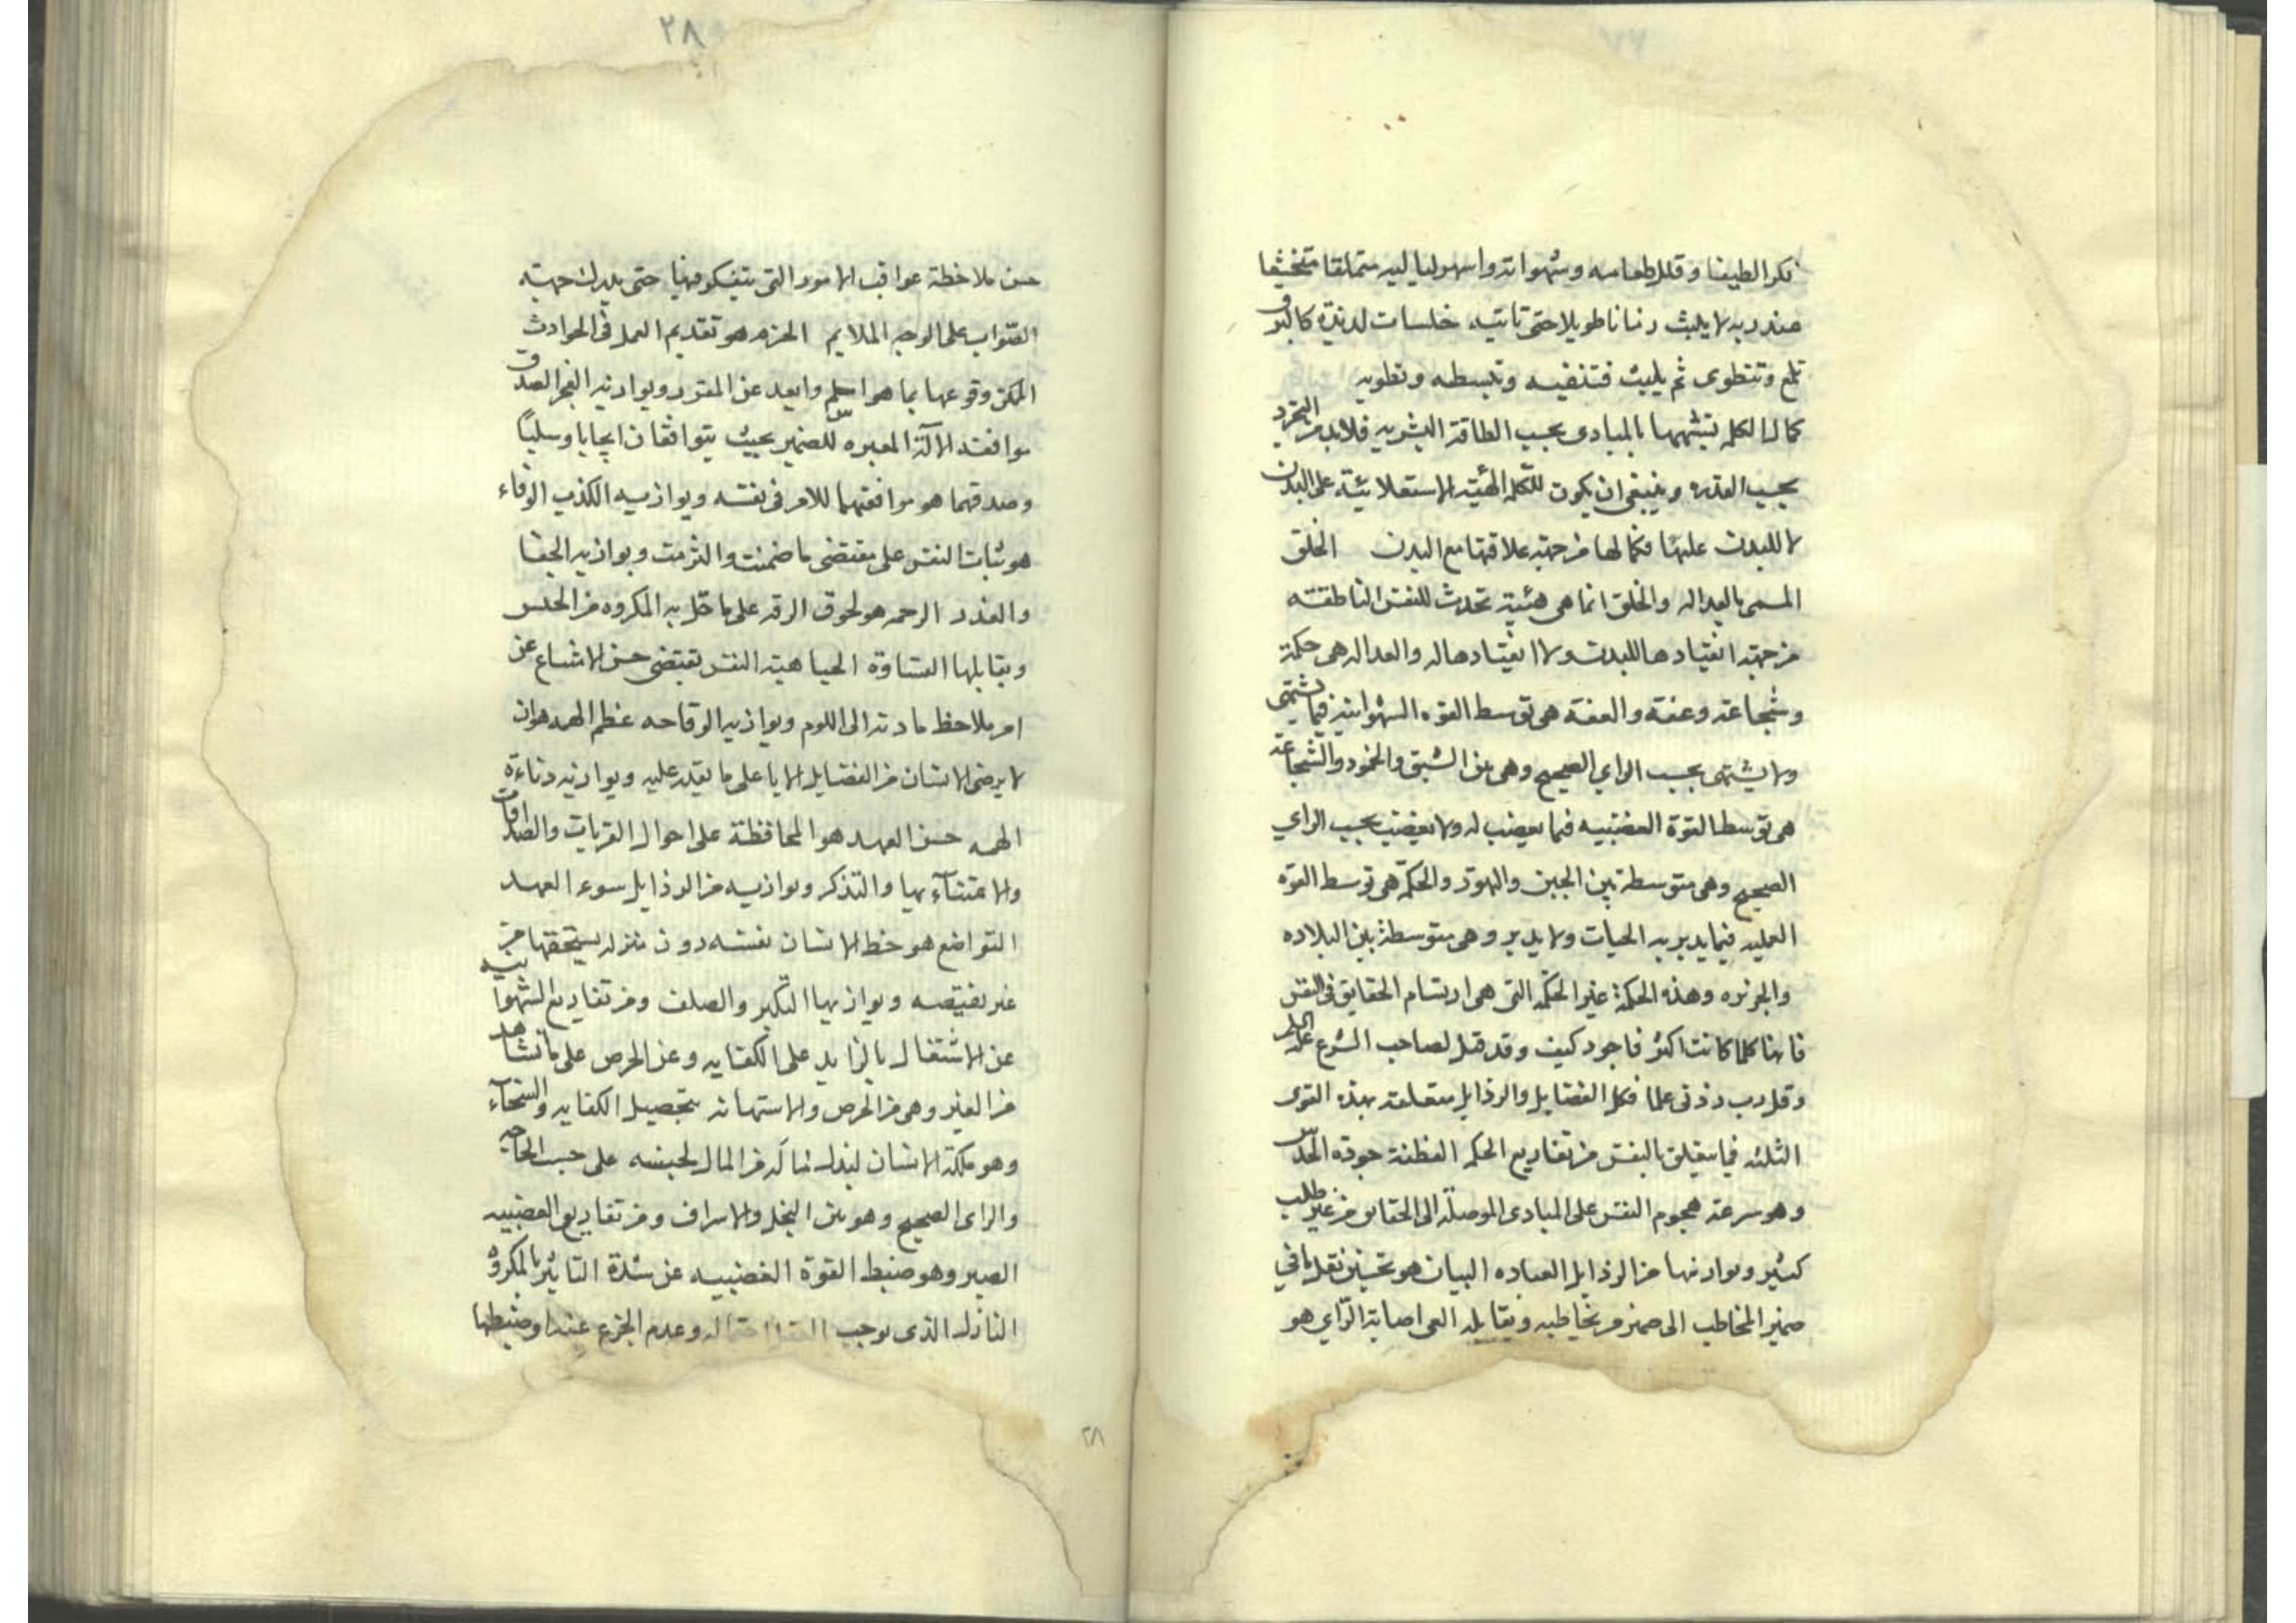 فكرا لطيفا وقلل طعامه وشهواته واسهر لياليه متملقا متخشعا
عند ربه لا يلبث زمانا طويلا حتى تاتيه خلسات لذيذة كالبرق
تلمع وتنطوى ثم يلبث فتنقيه وتبسطه وتطويه
كمال الكلمه تشبهها بالمبادى بحسب الطاقة البشريه فلابد من التجرد
بحسب القدره وينبغى ان يكون للكلمه الهيئة الاستعلائية على البدن
لا للبدن عليها فكمالها من جهة علاقتها مع البدن الخلق
المسمى بالعداله والخلق انما هى هيئة تحدث للنفس الناطقة
من جهة انقيادها للبدن ولا انقيادها له والعداله هى حكمة
وشجاعة وعفة والعفة هى توسط القوه الشهوانية فيما يشتهى
ولا يشتهى بحسب الراي الصحيح وهى بين الشبق والخمود والشجاعة
هى توسط القوة الغضبيه فيما يغضب له ولا يغضب بحسب الراي
الصحيح وهى متوسطة بين الجبن والتهور والحكمة هى توسط القوة
العمليه فيما يدبر به الحيات ولا يدبر وهى متوسطة بين البلاده
والجربزه وهذه الحكمة غير الحكمة التى هى ارتسام الحقايق فى النفس
فانها كلما كانت اكثر فاجود كيف وقد قيل لصاحب الشرع عليه السلم
وقل رب زدنى علما فكل الفضايل والرذايل متعلقة بهذه القوى
الثلثه فيما يتعلق بالنفس من تفاريع الحكمه الفطنة جودة الحدس
وهو سرعة هجوم النفس على المبادى الموصلة الى الحقايق من غير طلب
كثير ويوازنها من الرذايل الغباوه البيان هو تحسين نقل ما في
ضمير المخاطب الى ضمير من يخاطبه ويقابله العى اصابة الراي هو
٢٨
حسن ملاحظة عواقب الامور التى يتفكر فيها حتى يدرك جهة
الصواب على الوجه الملايم الحزم هو تقديم العمل فى الحوادث
الممكن وقوعها بما هو اسلم وابعد عن المقدر ويوازنه العجز الصدق
موافقة الآلة المعبره للضمير بحيث يتوافقان ايجابا وسلبًا
وصدقهما هو موافقتهما للامر فى نفسه ويوازيه الكذب الوفاء
هو ثبات النفس على مقتضى ما ضمنت والتزمت ويوازيه الجفا
والغدر الرحمه هو لحوق الرقه على ما حل به المكروه من الجنس
ويقابلها القساوة الحيا هيئة النفس تقتضى حسن الامتناع عن
امر يلاحظ مادته الى اللوم ويوازيه الوقاحه عظم الهمه هو ان
لا يرضى الانسان من الفضايل الا باعلى ما يقدر عليه ويوازنه دناءة
الهمه حسن العهد هو المحافظة على احوال القربات والصداقات
والاعتناء بها والتذكر ويوازيه من الرذايل سوء العهد
التواضع هو حط الانسان نفسه دون منزله يستحقها من
غير نقيصه ويوازيها التكبر والصلف ومن تفاريع الشهوانيه
عن الاشتغال بالزايد على الكفايه وعن الحرص على ما تشاهد
من الغير وهى من الحرص والاستهانة بتحصيل الكفايه والسخاء
وهو ملكة الانسان لبذل ماله من المال لجنسه على حسب الحاجه
والراى الصحيح وهو بين البخل والاسراف ومن تفاريع الغضبيه
الصبر وهو ضبط القوة الغضبيه عن شدة التاثير بالمكروه
النازل الذى يوجب العقل احتماله وعدم الجزع عنده او ضبطها
٢٨